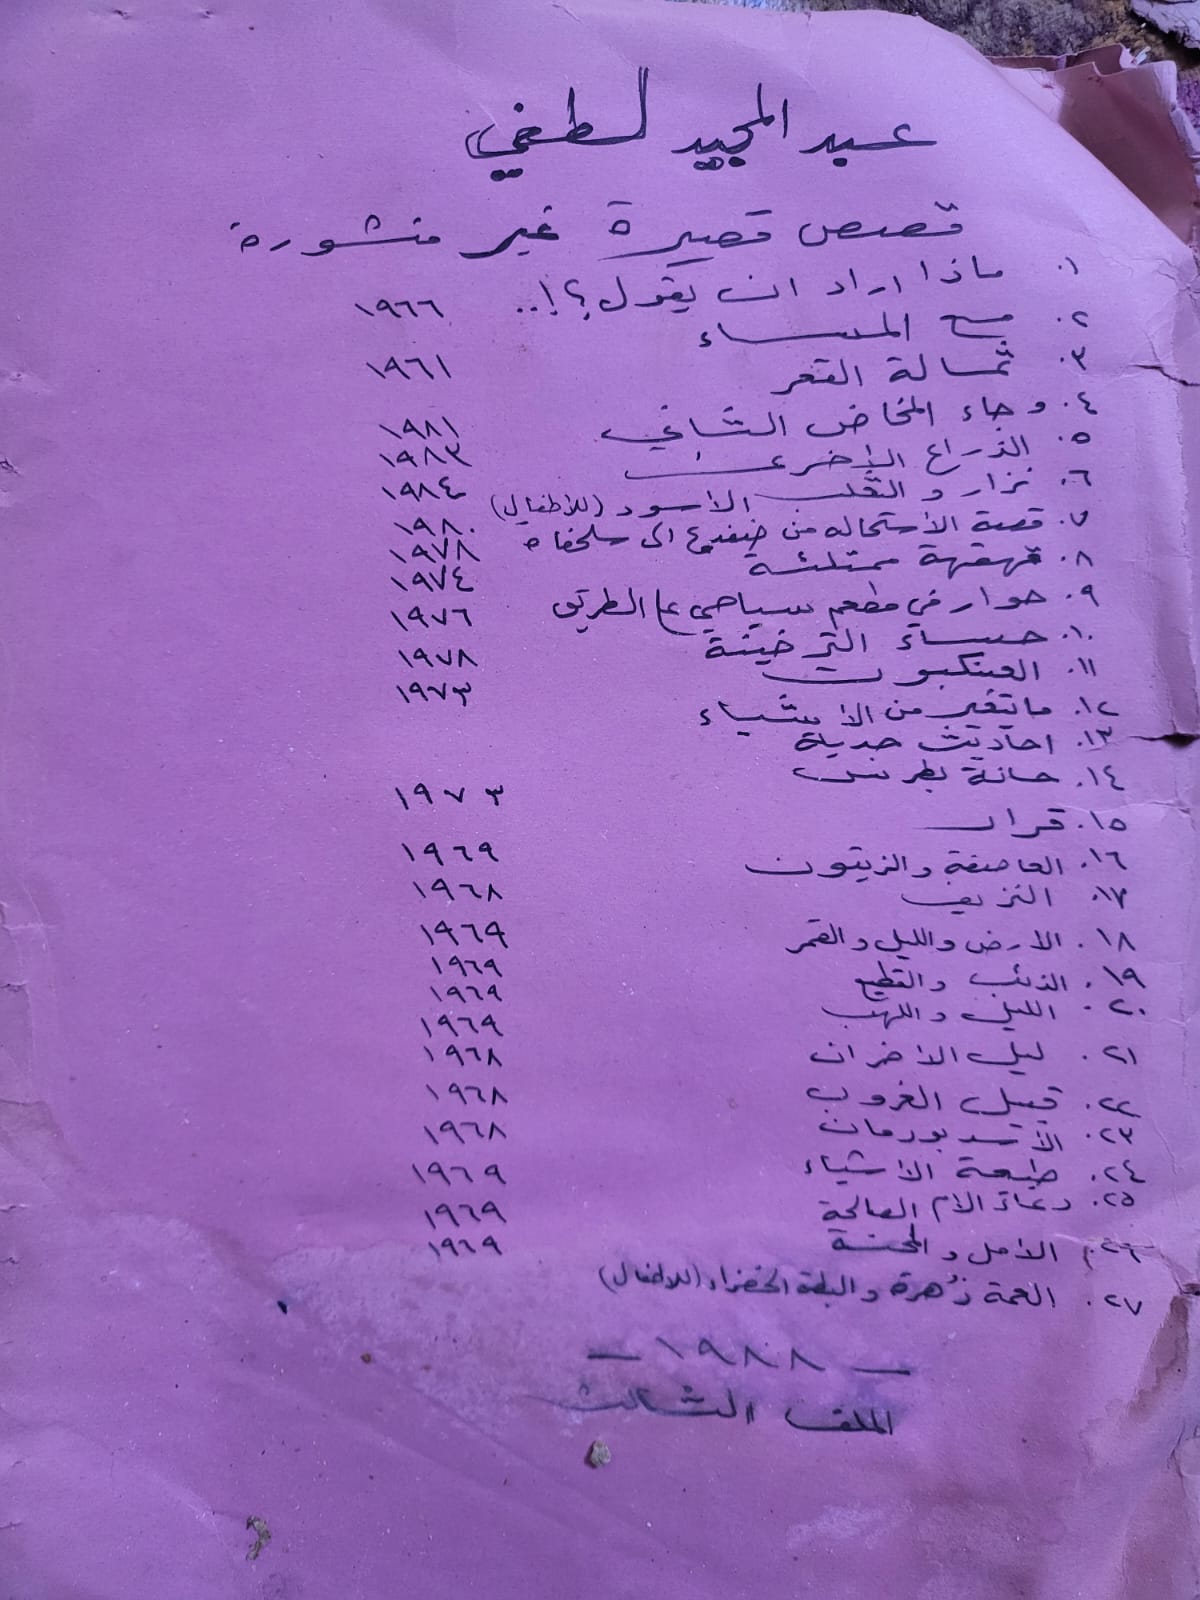 عبد المجيد لطفي
قصص قصيرة غير منشورة
١. ماذا اراد ان يقول؟!.. ١٩٦٦
٢. مع المساء
٣. ثمالة القعر ١٩٦١
٤. وجاء المخاض الثاني ١٩٨١
٥. الذراع الاخرى ١٩٨٣
٦. نزار و الثعلب الأسود (للأطفال) ١٩٨٤
٧. قصة الأستحاله من ضفدع الى سلحفاة ١٩٨٠
٨. قهقهة ممتلئة ١٩٧٨
٩. حوار في مطعم سياحي على الطريق ١٩٧٤
١٠. حساء الترخينة ١٩٧٦
١١. العنكبوت ١٩٧٨
١٢. مايتغير من الاشياء ١٩٧٣
١٣. احاديث جدية
١٤. حانة بطرس ١٩٧٣
١٥. قرار
١٦. العاصفة والزيتون ١٩٦٩
١٧. النزيف ١٩٦٨
١٨. الارض والليل والقمر ١٩٦٩
١٩. الذئب والقطيع ١٩٦٩
٢٠. الليل واللهب ١٩٦٩
٢١. ليل الاحزان ١٩٦٩
٢٢. قبيل الغروب ١٩٦٨
٢٣. الأسد بورمان ١٩٦٨
٢٤. طبيعة الاشياء ١٩٦٨
٢٥. دعاء الام الصالحة ١٩٦٩
٢٦. الأمل والمحنة ١٩٦٩
٢٧. العمة زُهرة والبطة الخضراء (للاطفال) ١٩٦٩
— ١٩٨٨ —
الملف الثالث